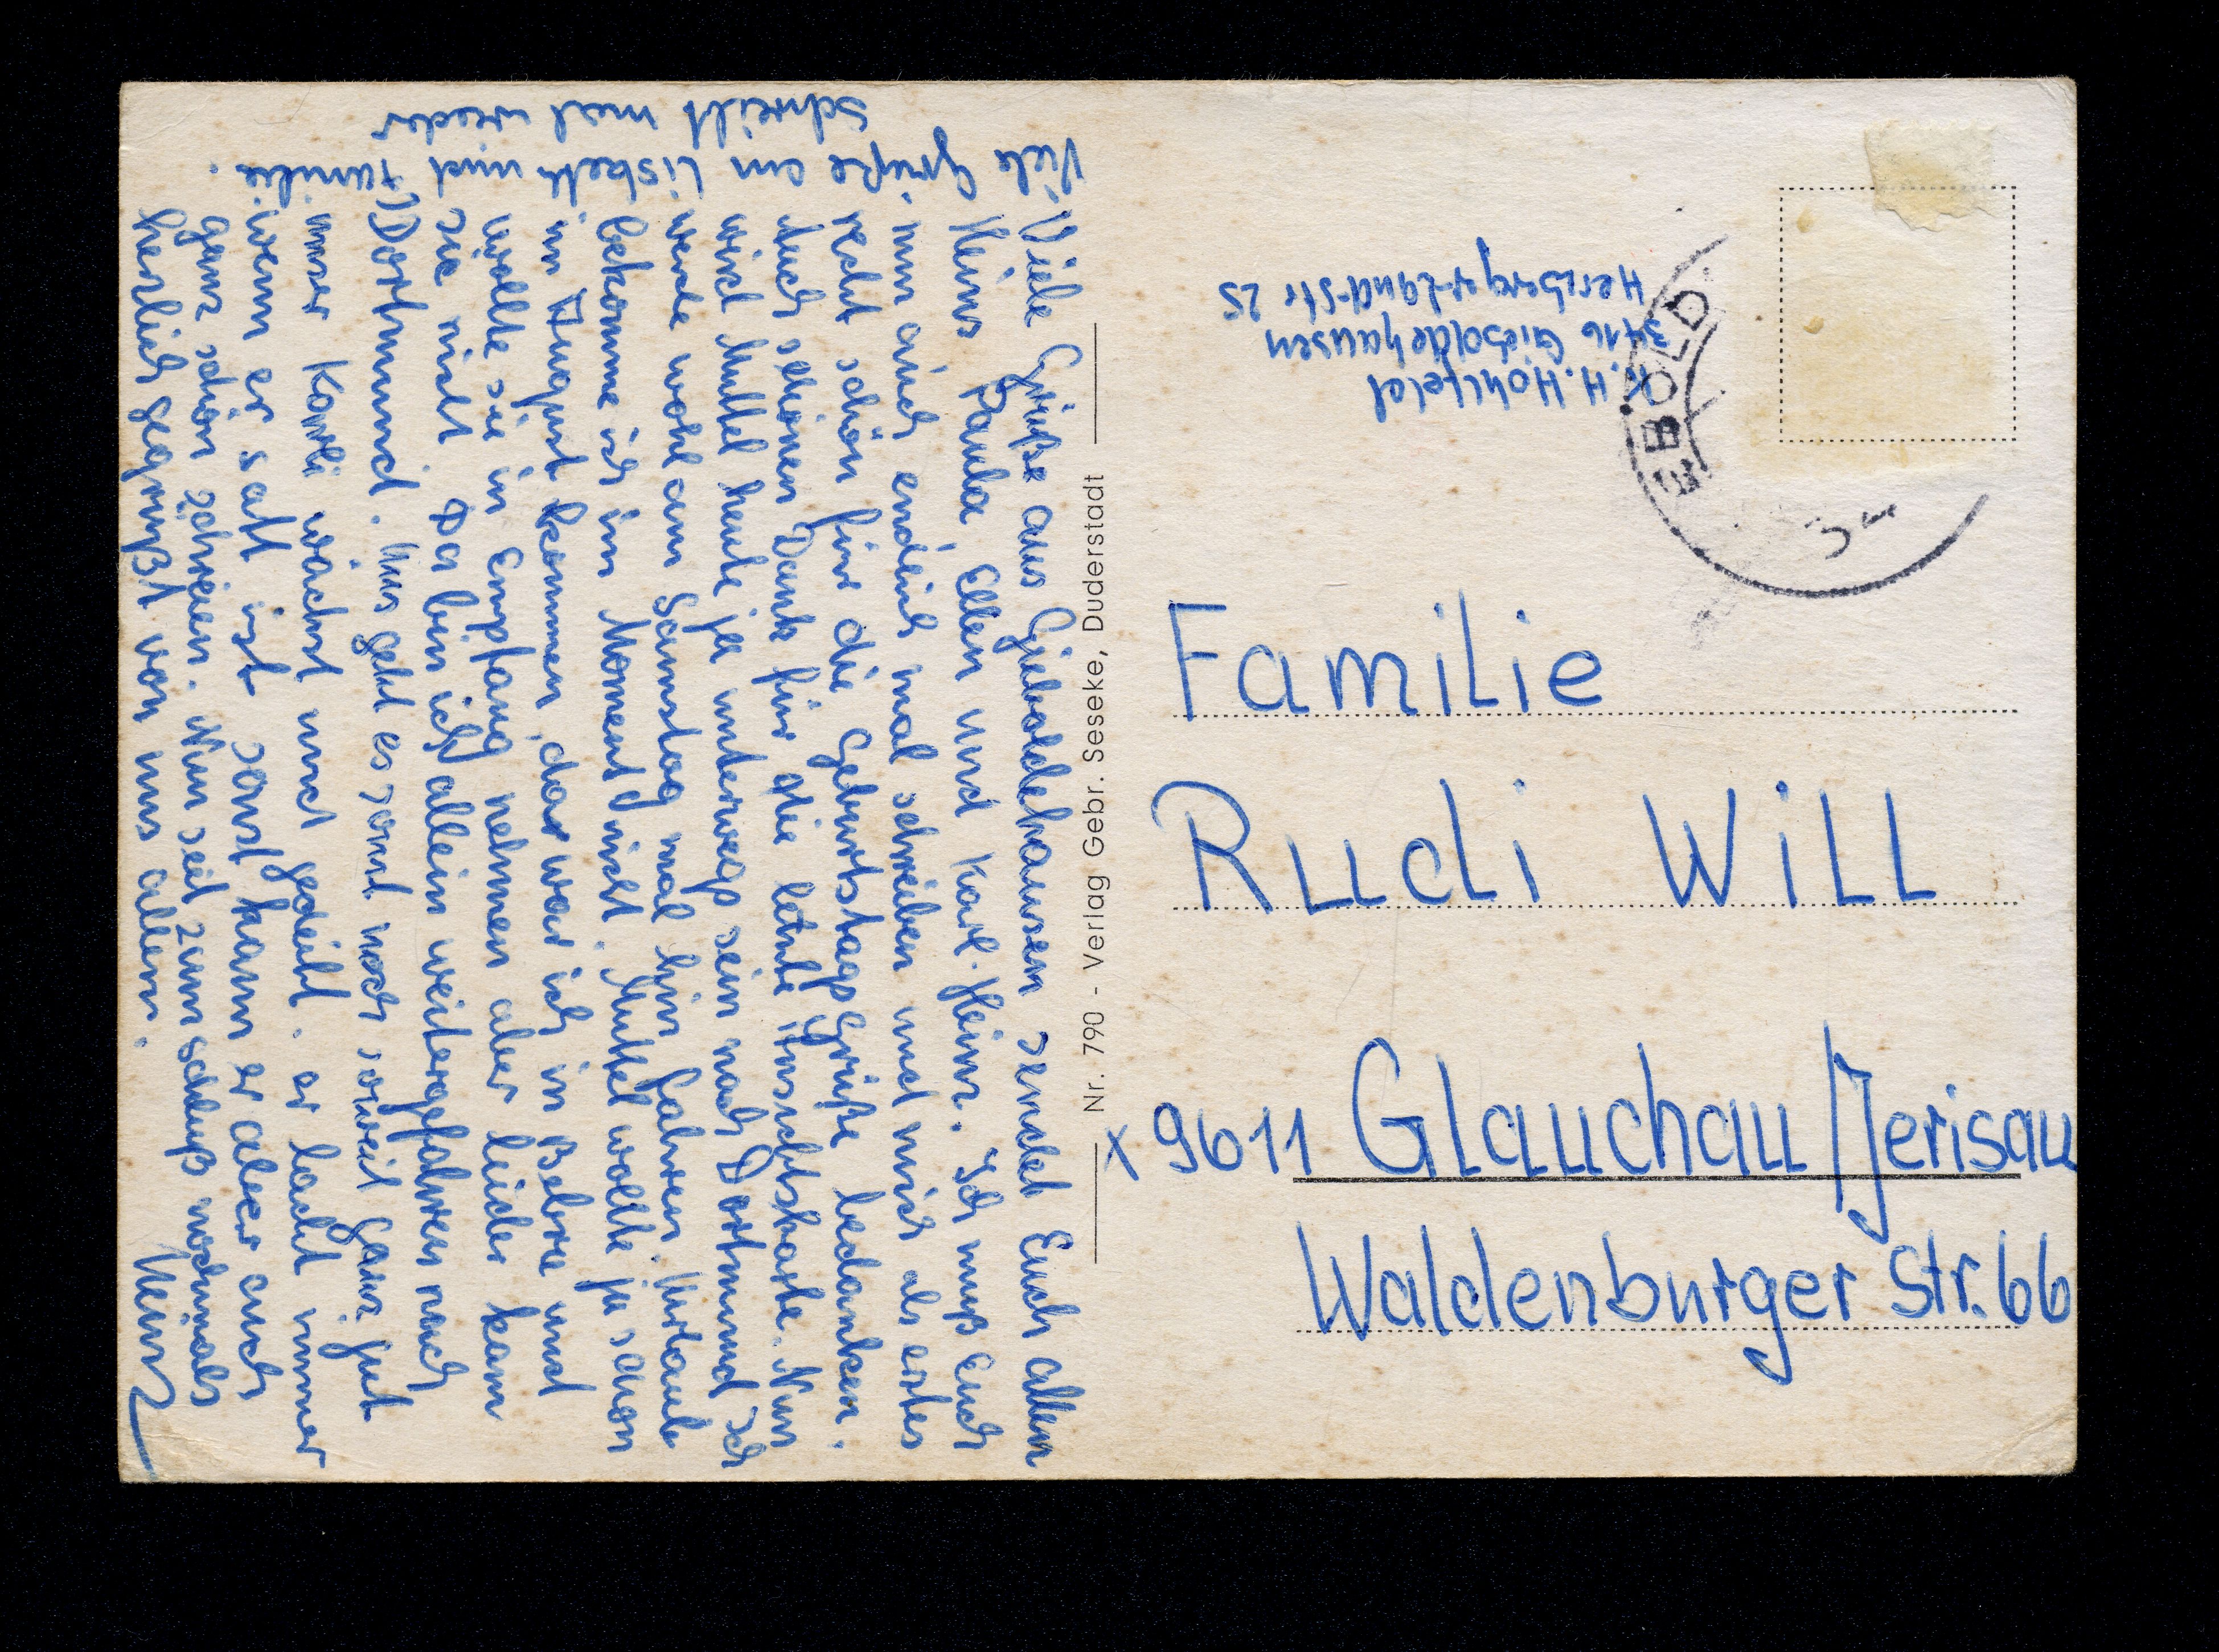 Viele Grüße aus Gieboldehausen sendet Euch allen
Heinz Paula, Ellen und Karl-Heinz. Ich muß Euch
nun auch endlich mal schreiben und mich als erstes
recht schön für die Geburtstagsgrüße bedanken.
Auch schönen Dank für die letzte Ansichtskarte. Nun
wird Muttel heute ja unterwegs sein nach Dortmund ich
werde wohl am Samstag mal hin fahren. Urlaub
bekomme ich im Moment nicht. Muttel wollte ja schon
in August kommen, da war ich in Bebra und
wollte sie in Empfang nehmen aber leider kam
sie nicht Da bin ich allein weitergefahren nach
Dortmund. Uns geht es sonst noch soweit ganz gut
unser Karli wächst und gedeiht. er lacht immer
wenn er satt ist sonst kann er aber auch
ganz schön schreien. Nun seit zum schluß nochmals
herzlich gegrüßt von uns allen.
Heinz
Viele Grüße an Lisbeth und Familie.
schreibt mal wieder
Nr. 790 - Verlag Gebr. Seseke, Duderstadt
K.H. Hohlfeld
3416 Gieboldehausen
Herzberger-Land-Str 25
EBOLD
Familie
Rudi Will
x 9611 Glauchau/Jerisau
Waldenburger Str. 66